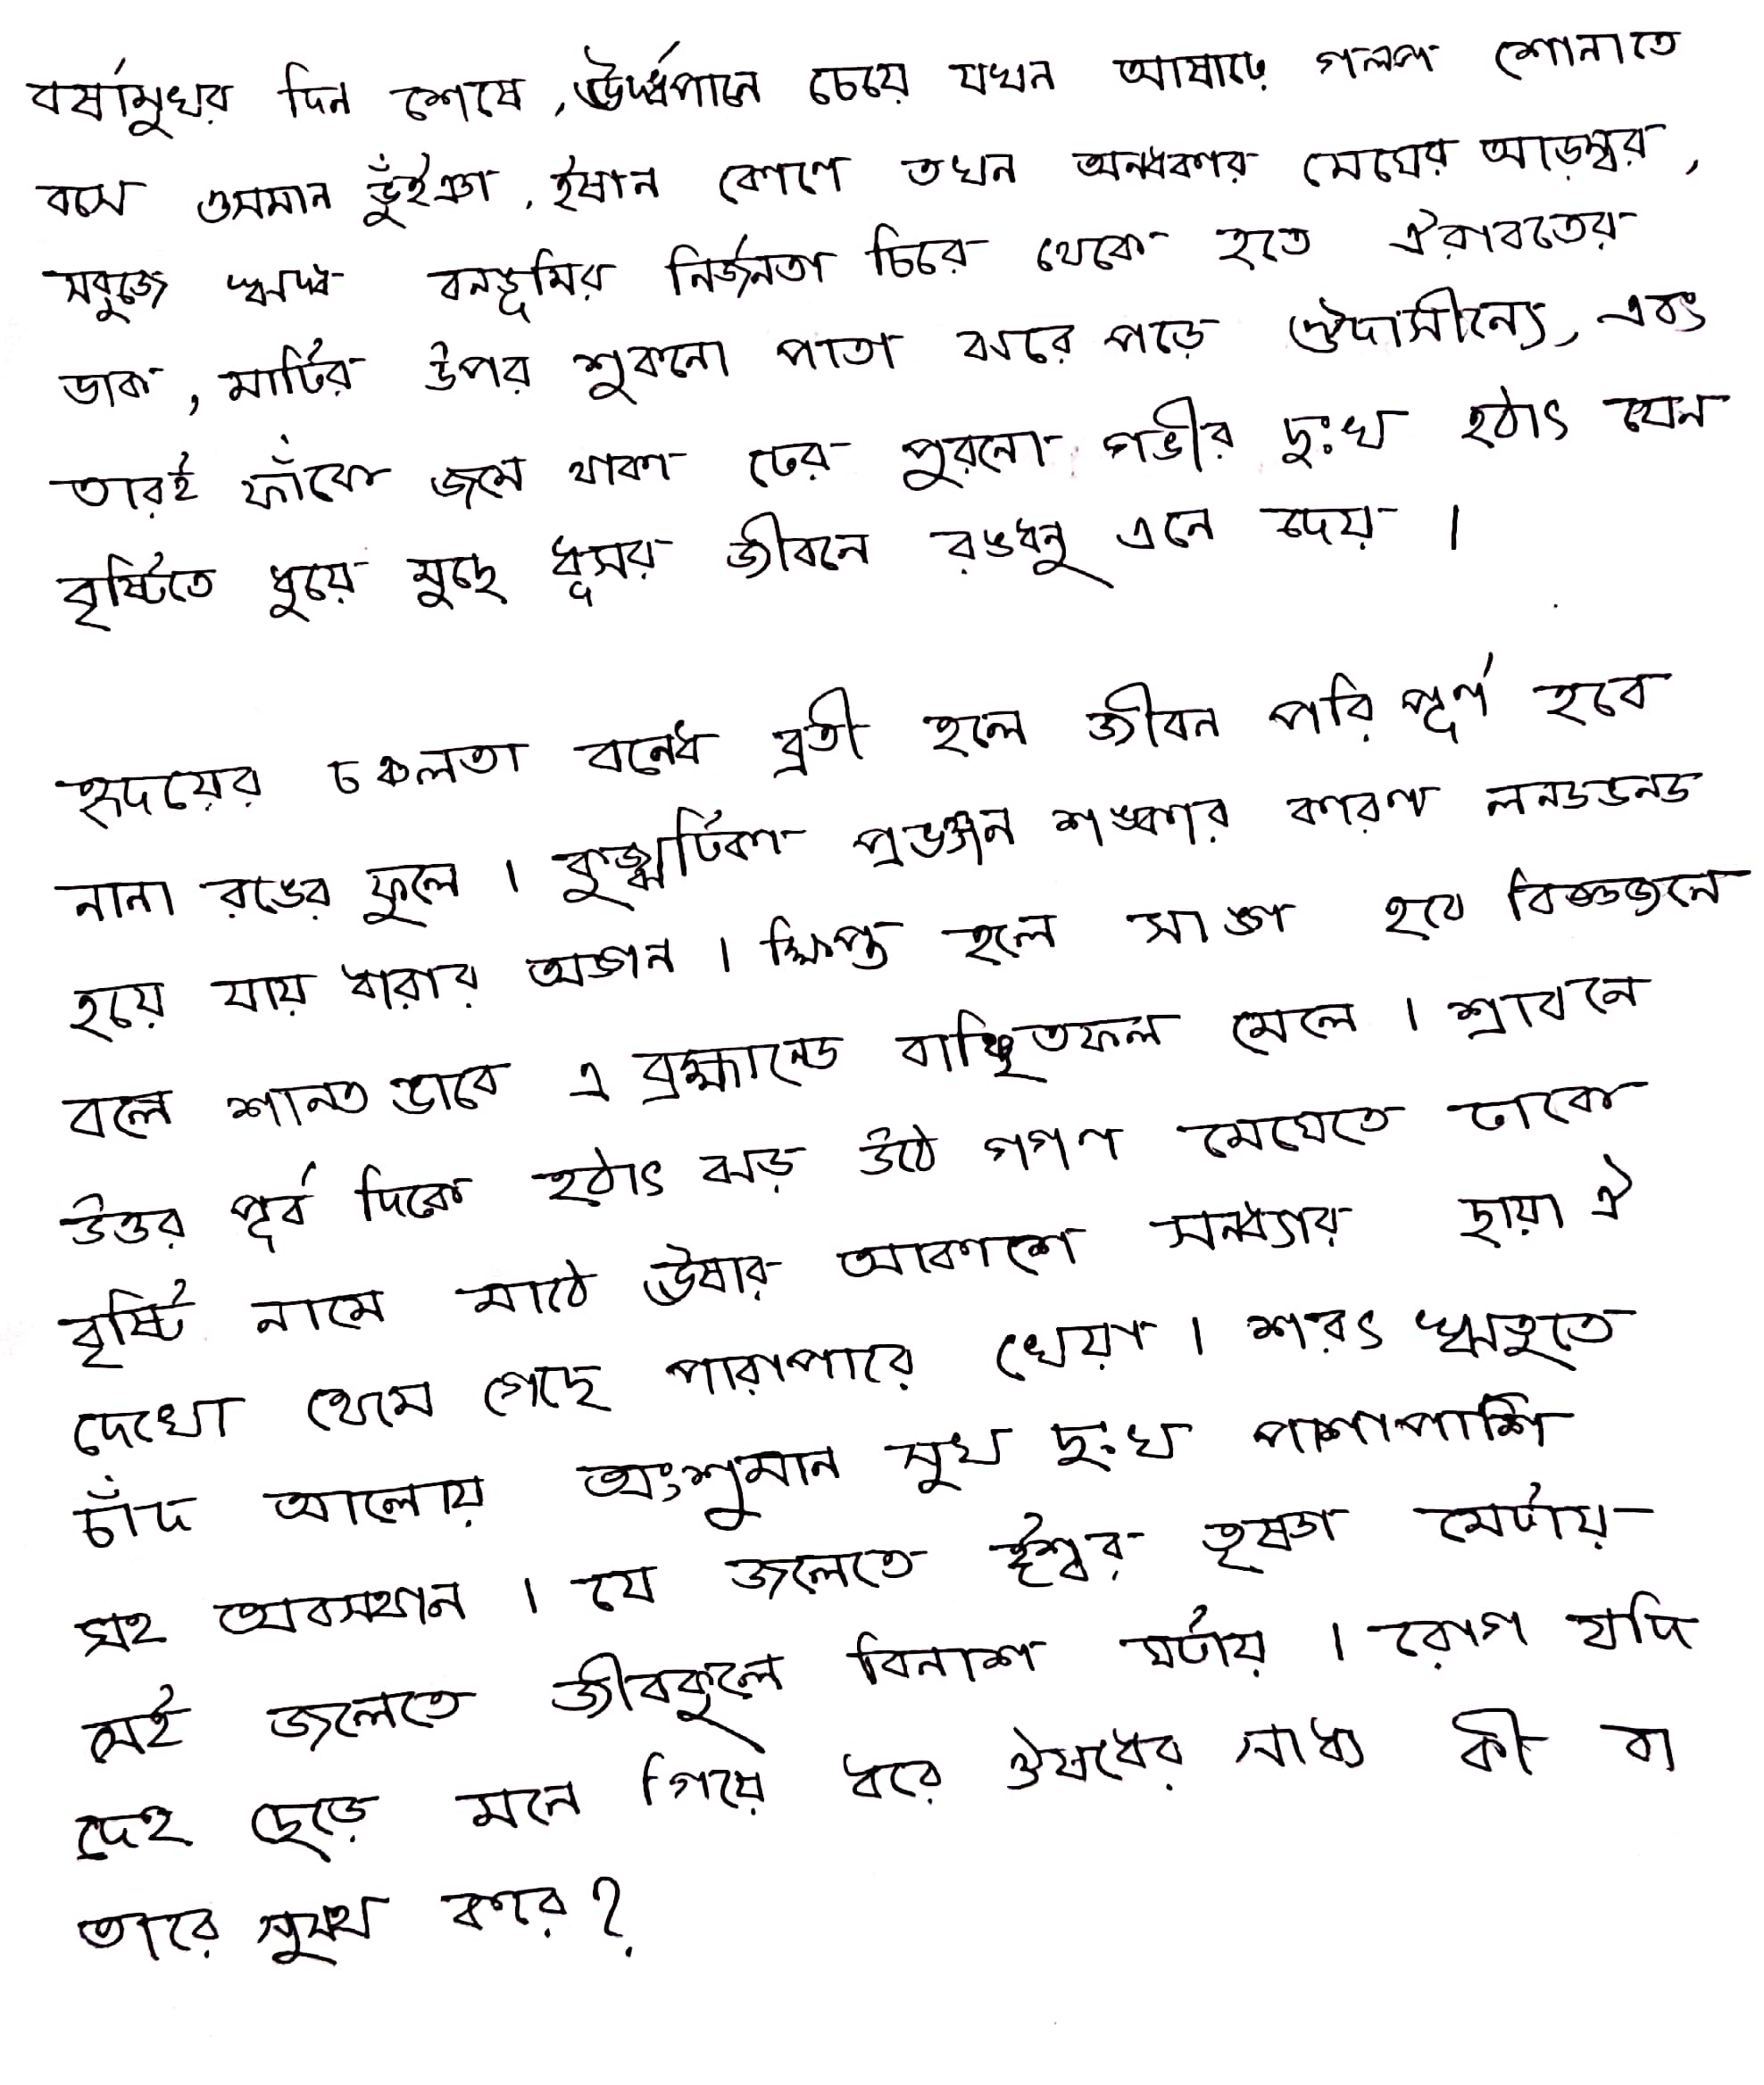 বর্ষামুখর দিন শেষে, ঊর্দ্ধপানে চেয়ে যখন আষাঢ়ে গলপ শোনাতে
বসে ওসমান ভুঁইঞা, ঈষান কোণে তখন অনধকার মেঘের আড়ম্বর,
সবুজে ঋদ্ধ বনভূমির নির্জনতা চিরে থেকে হতে ঐরাবতের
ডাক, মাটির উপর শুকনো পাতা ঝরে পড়ে ঔদাসীন্যে, এবং
তারই ফাঁকে জমে থাকা ঢের পুরনো গভীর দুঃখ হঠাৎ যেন
বৃষ্টিতে ধুয়ে মুছে ধূসর জীবনে রঙধনু এনে দেয়।
হৃদয়ের চঞ্চলতা বনেধ ব্রতী হলে জীবন পরিপূর্ণ হবে
নানা রঙের ফুলে। কুজ্ঝটিকা প্রভঞ্জন শঙ্কার কারণ লনডভনড
হয়ে যায় ধারার অঙ্গন। ক্ষিপ্ত হলে সাঙ্গ হবে বিজ্ঞজনে
বলে শানত ভাবে এ ব্রহ্মানেড বাঞ্ছিতফল মেলে। শ্রাবনে
উত্তর পূর্ব দিকে হঠাৎ ঝড় উঠে গগণ মেঘেতে ঢাকে
বৃষ্টি নামে মাঠে ঊষার আকাশে সনধ্যার ছায়া ঐ
দেখো থেমে গেছে পারাপারে খেয়া। শরৎ ঋতুতে
চাঁদ আলোয় অংশুমান সুখ দুঃখ পাশাপাশি
সহ অবসথান। যে জলেতে ঈশ্বর তৃষ্ণা মেটায়
সেই জলেতে জীবকুলে বিনাশ ঘটায়। রোগ যদি
দেহ ছেড়ে মনে গিয়ে ধরে ঔষধের সাধ্য কী বা
তারে সুসথ করে?